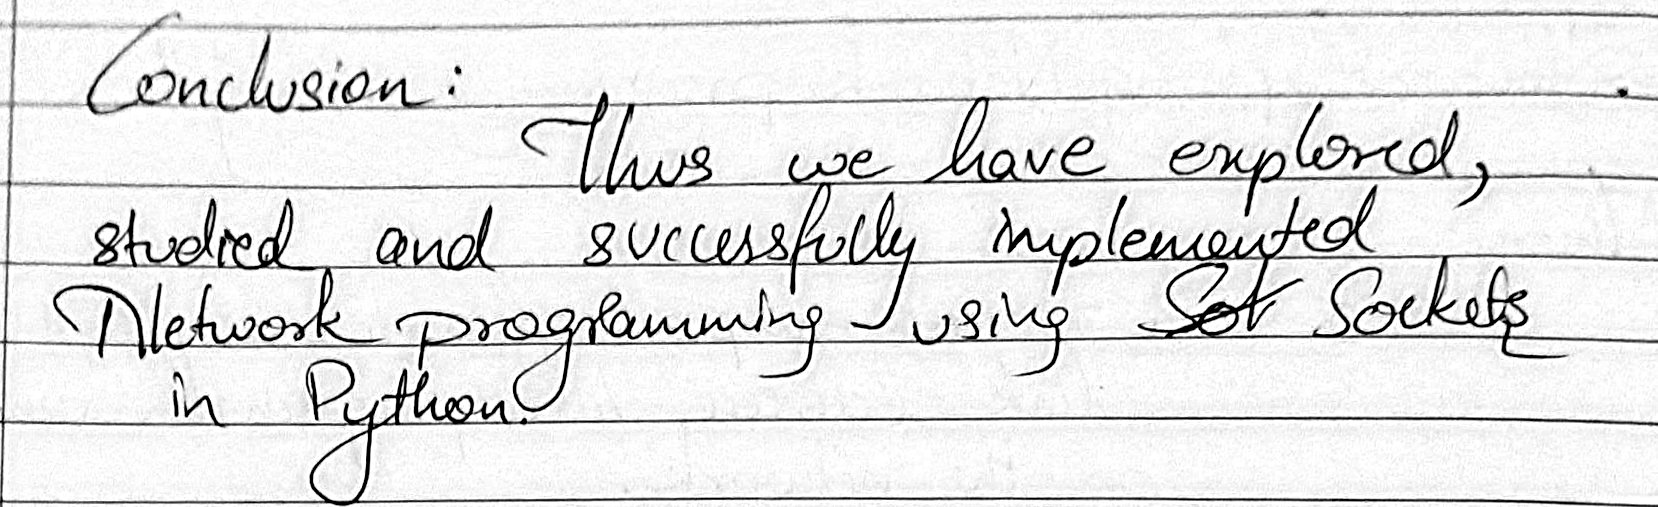 Conclusion:
Thus we have explored,
studied and successfully implemented
Network programming using Sot Sockets
in Python.